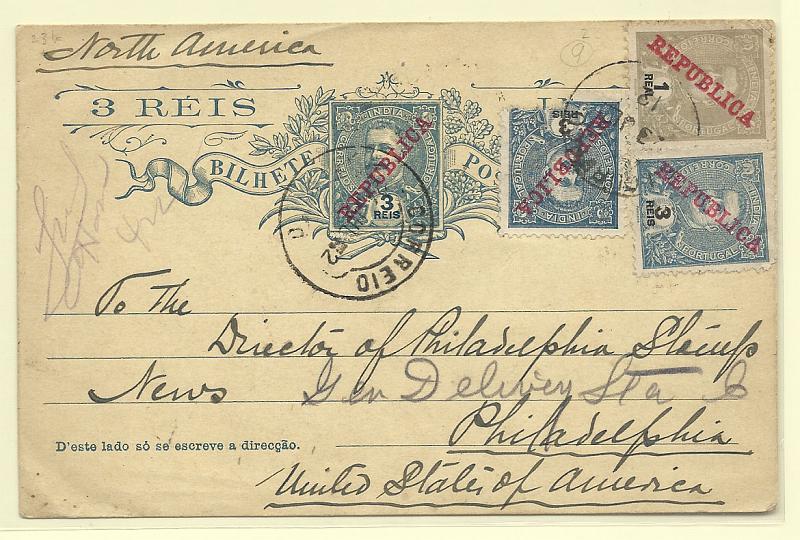 North America
9
3 RÉIS
BILHETE POS
INDIA
CORREIO
PORTUGAL
3
REIS
REPUBLICA
CORREIO
INDIA
PORTUGAL
3
REIS
REPUBLICA
CORREIO
INDIA
PORTUGAL
1
REAL
REPUBLICA
CORREIO
INDIA
PORTUGAL
3
REIS
REPUBLICA
To the
Director of Philadelphia Stamp
News Gen Delivery Sta
Philadelphia
D'este lado só se escreve a direcção.
United States of America